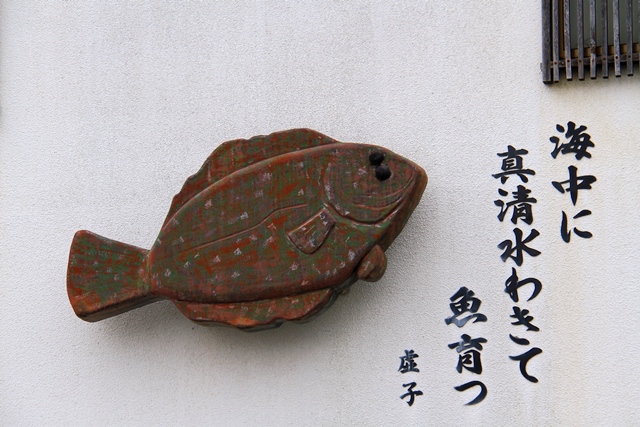 海中に
真清水わきて
魚育つ
虚子